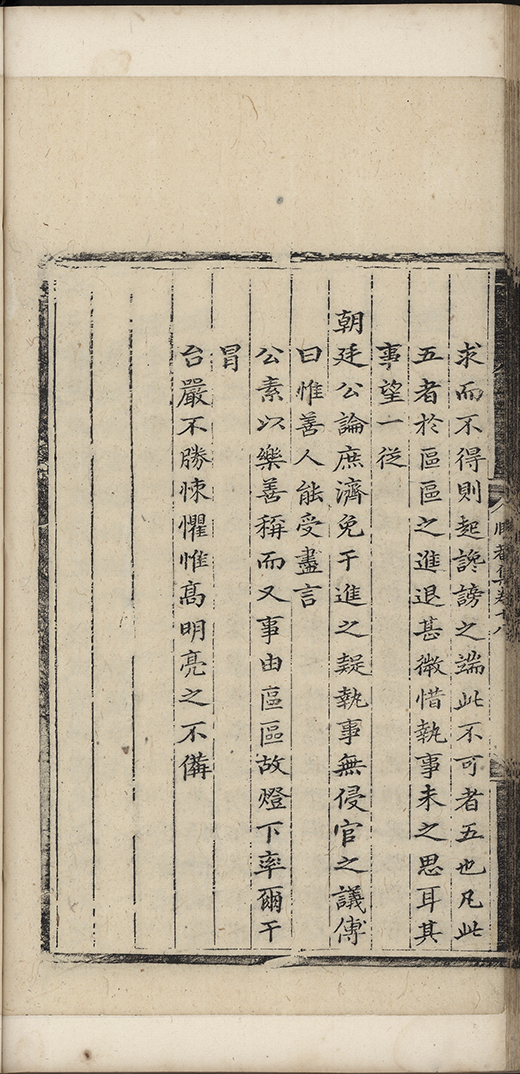 求而不得則起讒謗之端此不可者五也凡此
五者於區區之進退甚微惜執事未之思耳其
事望一從
朝廷公論庶濟免干進之疑執事無侵官之議傳
曰惟善人能受盡言
公素以樂善稱而又事由區區故燈下率爾干
冒
台嚴不勝悚懼惟高明亮之不備
集卷十八